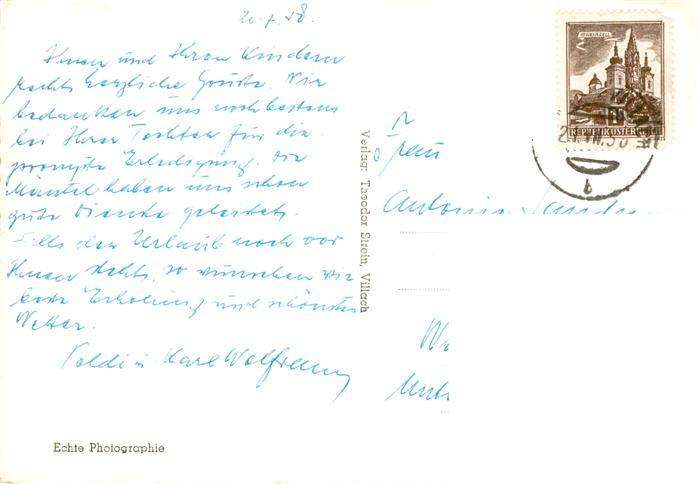 20.7.58.
Ihnen und Ihren Kindern
recht herzliche Grüße. Wir
bedanken uns noch bestens
bei Ihrer Tochter für die
prompte Erledigung. Die
Mäntel haben uns schon
gute Dienste geleistet.
Falls der Urlaub noch vor
Ihnen steht, so wünschen wir
gute Erholung und schönstes
Wetter.
Karl Wolfram
Echte Photographie
Verlag: Theodor Strein, Villach
MARIAZELL
REPUBLIK ÖSTERREICH
b
Frau
Antonia